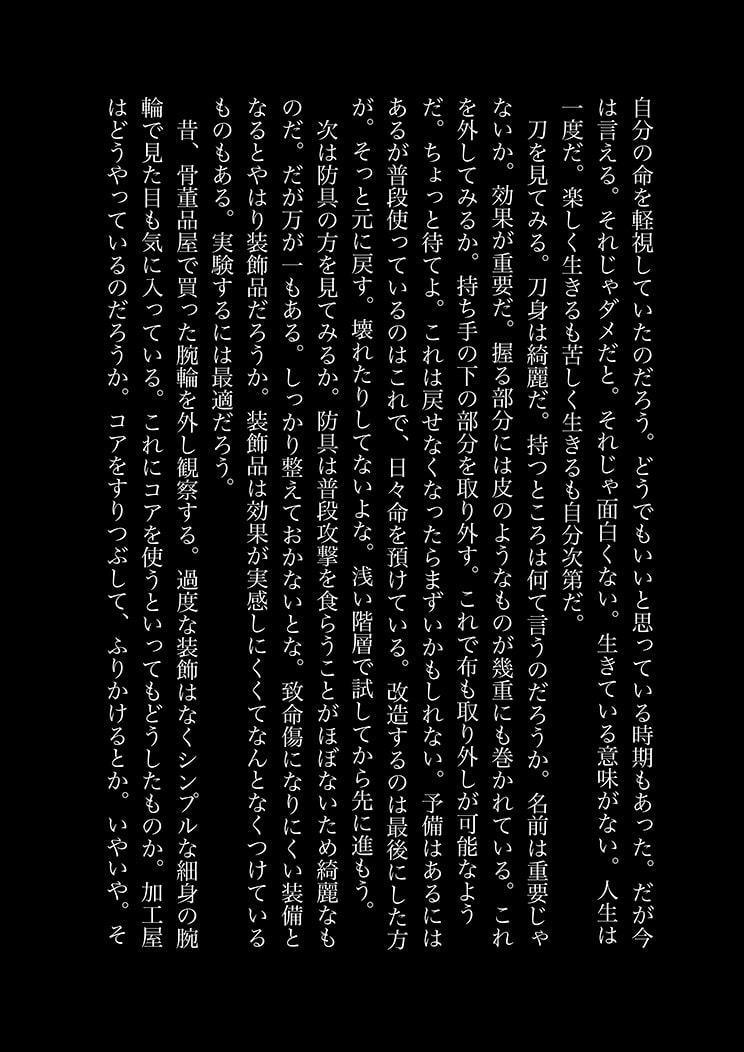 自分の命を軽視していたのだろう。どうでもいいと思っている時期もあった。だが今
は言える。それじゃダメだと。それじゃ面白くない。生きている意味がない。人生は
一度だ。楽しく生きるも苦しく生きるも自分次第だ。
刀を見てみる。刀身は綺麗だ。持つところは何て言うのだろうか。名前は重要じゃ
ないか。効果が重要だ。握る部分には皮のようなものが幾重にも巻かれている。これ
を外してみるか。持ち手の下の部分を取り外す。これで布も取り外しが可能なよう
だ。ちょっと待てよ。これは戻せなくなったらまずいかもしれない。予備はあるには
あるが普段使っているのはこれで、日々命を預けている。改造するのは最後にした方
が。そっと元に戻す。壊れたりしてないよな。浅い階層で試してから先に進もう。
次は防具の方を見てみるか。防具は普段攻撃を食らうことがほぼないため綺麗なも
のだ。だが万が一もある。しっかり整えておかないとな。致命傷になりにくい装備と
なるとやはり装飾品だろうか。装飾品は効果が実感しにくくてなんとなくつけている
ものもある。実験するには最適だろう。
昔、骨董品屋で買った腕輪を外し観察する。過度な装飾はなくシンプルな細身の腕
輪で見た目も気に入っている。これにコアを使うといってもどうしたものか。加工屋
はどうやっているのだろうか。コアをすりつぶして、ふりかけるとか。いやいや。そ